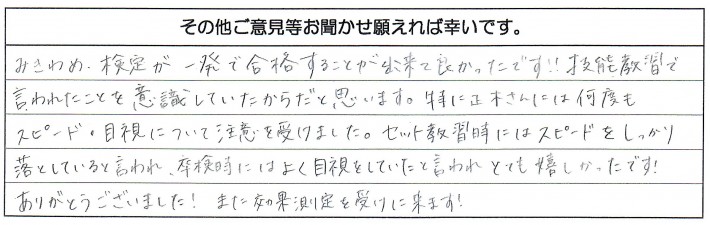 その他ご意見等お聞かせ願えれば幸いです。
みきわめ、検定が一発で合格することが出来て良かったです!!技能教習で
言われたことを意識していたからだと思います。特に正木さんには何度も
スピード・目視について注意を受けました。セット教習時にはスピードをしっかり
落としていると言われ、卒検時にはよく目視をしていたと言われとても嬉しかったです!
ありがとうございました! また効果測定を受けに来ます!